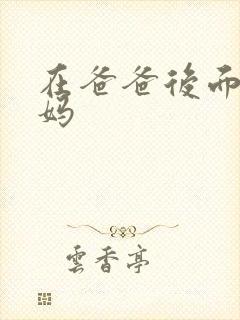 在爸爸後面
妈
雲香亭